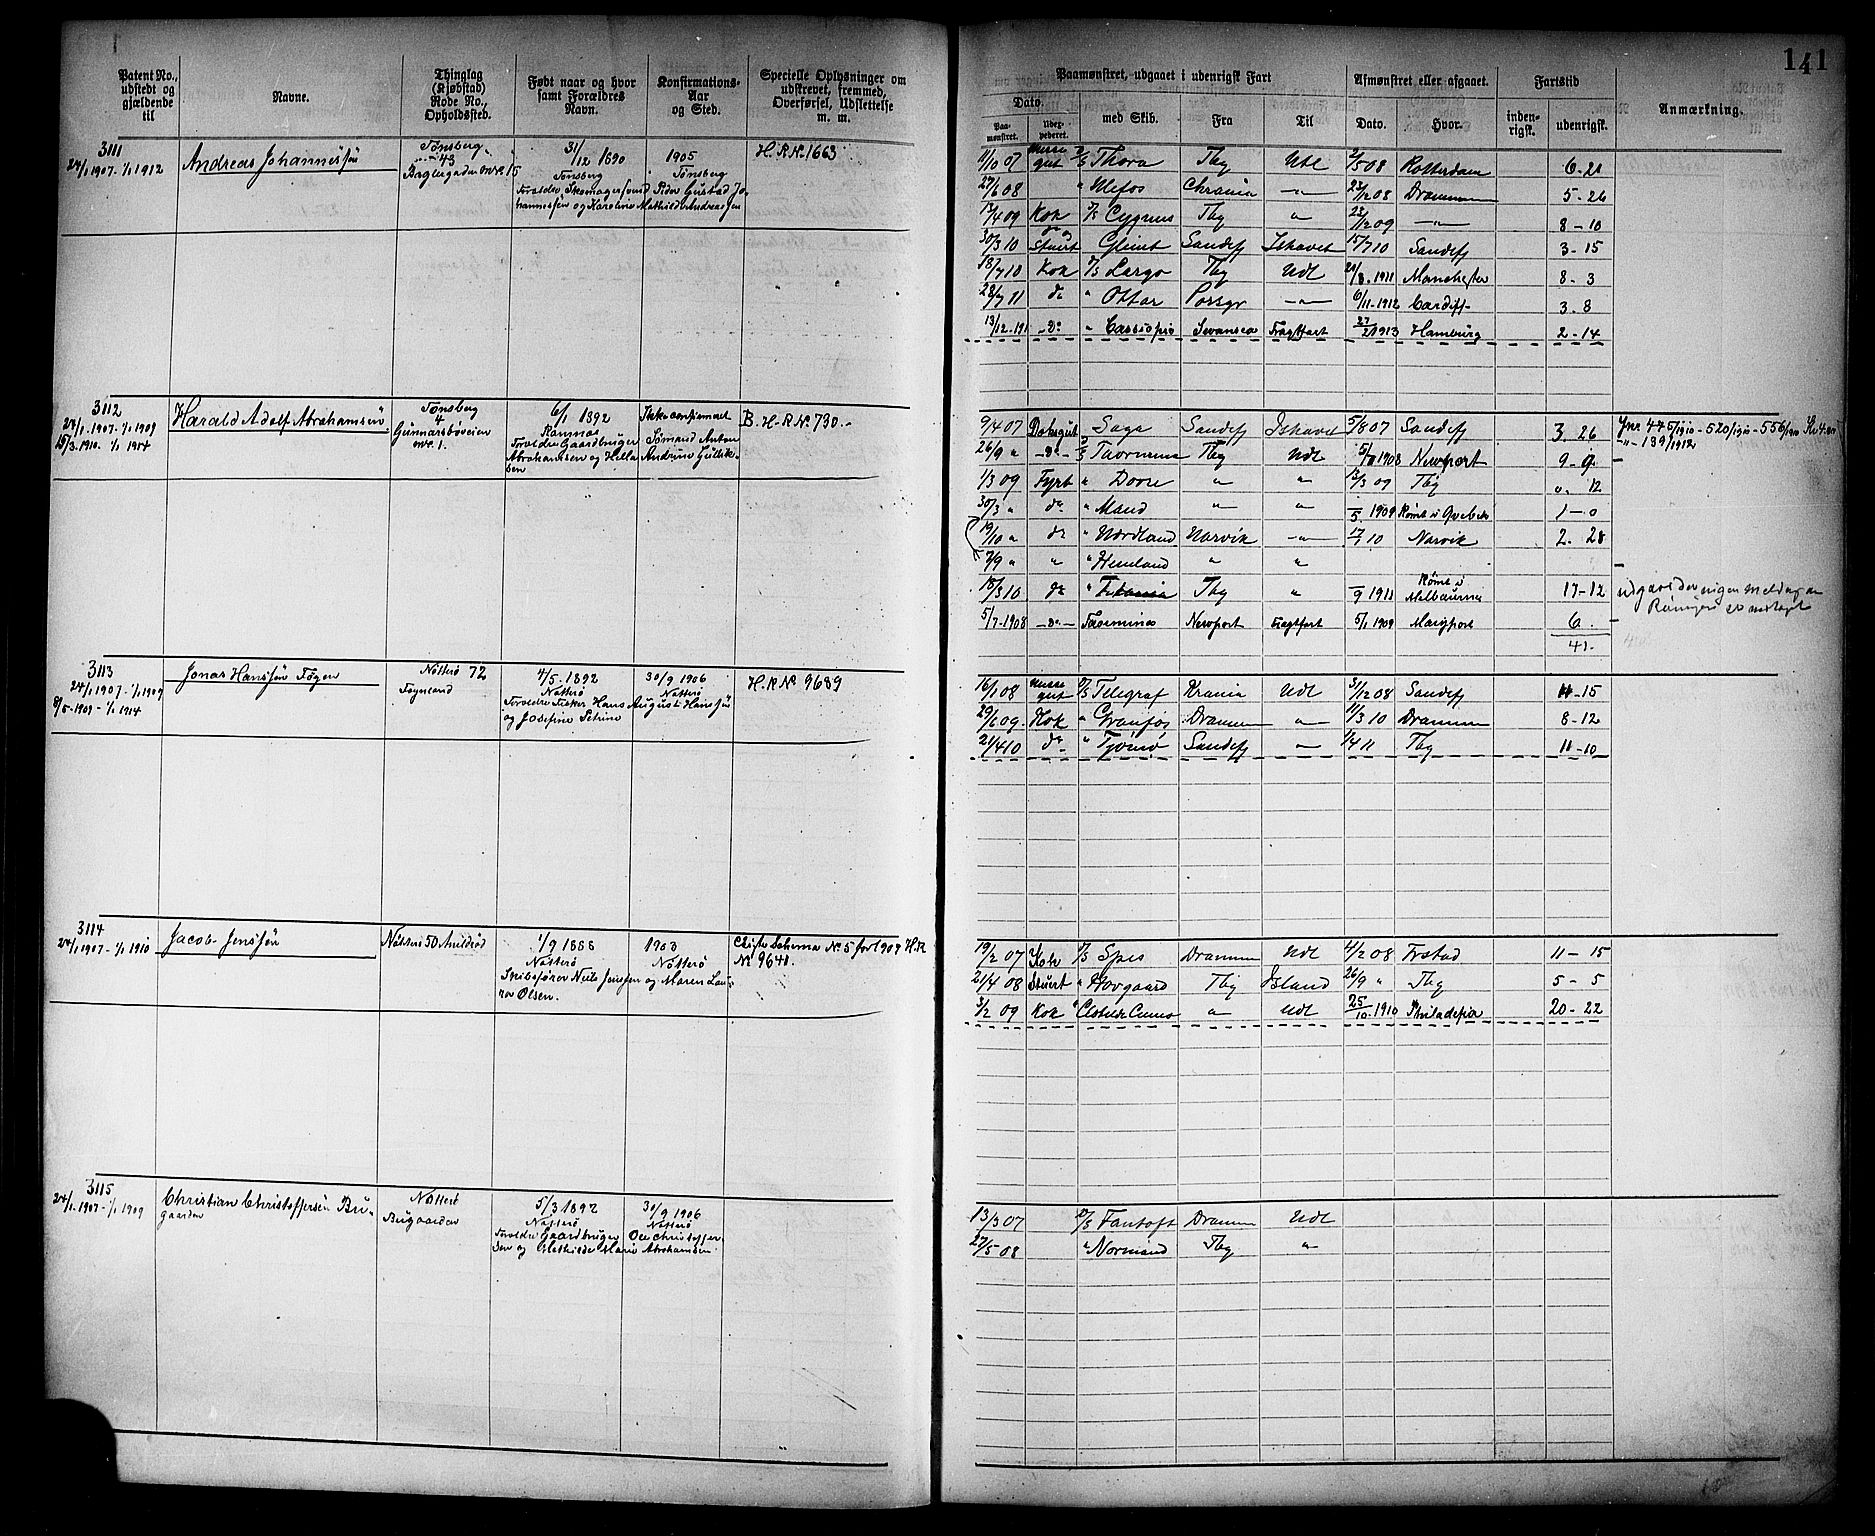 141
Patent No., udstedt og gjældende til
Navne.
Thinglag (Kjøbstad) Rode No., Opholdssteb.
Født naar og hvor samt Forældres Navn.
Konfirmations-Aar og Sted.
Specielle Oplysninger om udskrevet, fremmed, Overførsel, Udslettelse m. m.
Paamønstret, udgaaet i udenrigsk Fart
Afmønstret eller afgaaet.
Fartstid
Anmærkning.
Dato.
Paa-mønstret.
Udex-pederet.
med Skib.
Fra
Til
Dato.
Hvor.
inden-rigsk.
udenrigsk.
3111
24/1 1907 - 1/1 1912
Andreas Johannessøn
Tønsberg
43
31/12 1890
Tønsberg
1905
Tønsberg
H.R.No. 1663
Forældre Skomagersvend Peder Gustad Jo-
hannessøn og Karoline Mathilde Andreassen
Thora Tbg Udl 2/5 08 Rotterdam 6-21
27/6 08 " Ulefos Chrania -"- 23/12 08 Drammen 5-26
13/4 09 Kok Cygnus Tbg " 23/12 09 -"- 8-10
30/3 10 Stuert Glimt Sandefj Ishavet 15/7 10 Sandefj 3-15
18/7 10 Kok Largo Tbg Udl 8-3 Manchester
28/7 11 do " Ottar Porsgr -"- 6/11-1912 Cardiff 3.8
13/12-191 -Do " Cassiopeia Swansea Fragtfart 27/2 1913 Hamburg 2-14
3112
24/1 1907 - 1/1 1909
15/3 1910 - 1/1 1914
Harald Adolf Abrahamsen
Tønsberg
4
Gunnarsbøveien
No. 1.
6/1 1892
Ramnes
Ikke confirmeret
B. H-R No. 730.
Forældre Gaardbruger Sømand Anton
Abrahamsen og Hella Andrine Gullik-
sen
9/4 07 Dæksgut Saga Sandefj Ishavet 5/8 07 Sandefj 3 26
26/9 " -Do- Taormina Tbg Udl 1908 Newport 9-9
1/3 09 Fyrb " Dorre " " 13/3 09 Tbg 12
30/3 " do " Maud " " 5 1909 Rømt i 1-0
19/10 " do " Nordland Narvik -"- 17/1 10 Narvik 2-28
7/9 " " " Hemland " "
15/3 10 do " Titania Tbg " 9 1911 Rømt i Melbourne 17-12
5/7-1908 -Do- Taormina Newport Fragtfart 5/1 1909 Maryport 6
41.
3113
24/1 1907 - 1/1 1909
8/5-1909 - 1/1 1914
Jonas Hanssøn Føgen
Nøtterø 72
Føynland
4/5-1892
Nøtterø
30/9 1906
Nøtterø
H-R No 9689
Forældre Fisker Hans August Hanssøn
og Josefine Petrine
16/1 08 Telegraf Krania Udl 31/12 08 Sandefj 11-15
29/6 09 Kok " Granfos Drammen " 11/3 10 Drammen 8-12
21/4 10 do " Tjømø Sandefj -"- 1/4 11 Tbg 11-10
3114
24/1 1907 - 1/1 1910
Jacob Jenssøn
1/9 1888
Nøtterø
1903
Nøtterø
Skema No 5 for 1909 H.R
No 9641.
Skibsfører Niels Jenssen og Maren Lau-
ra Olsen.
19/2 07 Kok Spes Drammen Udl 4/2 08 Frstad 11-15
21/4 08 Stuert " Hovgaard Tbg Island 26/9 " Tbg 5-5
3/2 09 Kok Clotilde Cuneo " Udl 25/10-1910 Philadelfia 20-22
3115
24/1 1907 - 1/1 1909
Christian Christoffersen Bu-
gaarden
Nøtterø
Bugaarden
5/3 1892
Nøtterø
30/9 1906
Nøtterø
Forældre Gaardbruger Ole Christoffer-
sen og Mathilde Marie Abrahamsen
13/3 07 Fantoft Drammen Udl
27/5 08 " Normand Tbg "